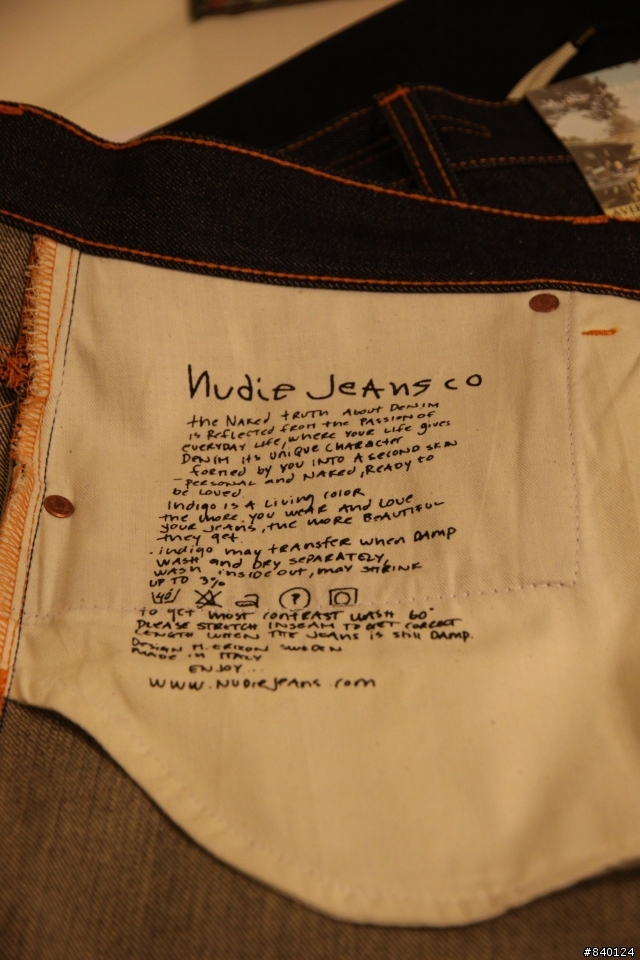 Nudie Jeans co
the Naked truth About Denim
is Reflected from the Passion of
everyday Life, where your Life gives
Denim its unique character
formed by you into a second skin
- personal and naked, Ready to
be loved
Indigo is a Living color
the more you wear and Love
your jeans, the more Beautiful
they get.
. indigo may transfer when Damp
wash and dry separately,
wash inside out, may shrink
up to 3%
to get most contrast wash 60°
Please stretch inseam to get correct
length when the jeans is still damp.
Design M. Erixon Sweden
Made in Italy
Enjoy...
www.nudiejeans.com
#840124